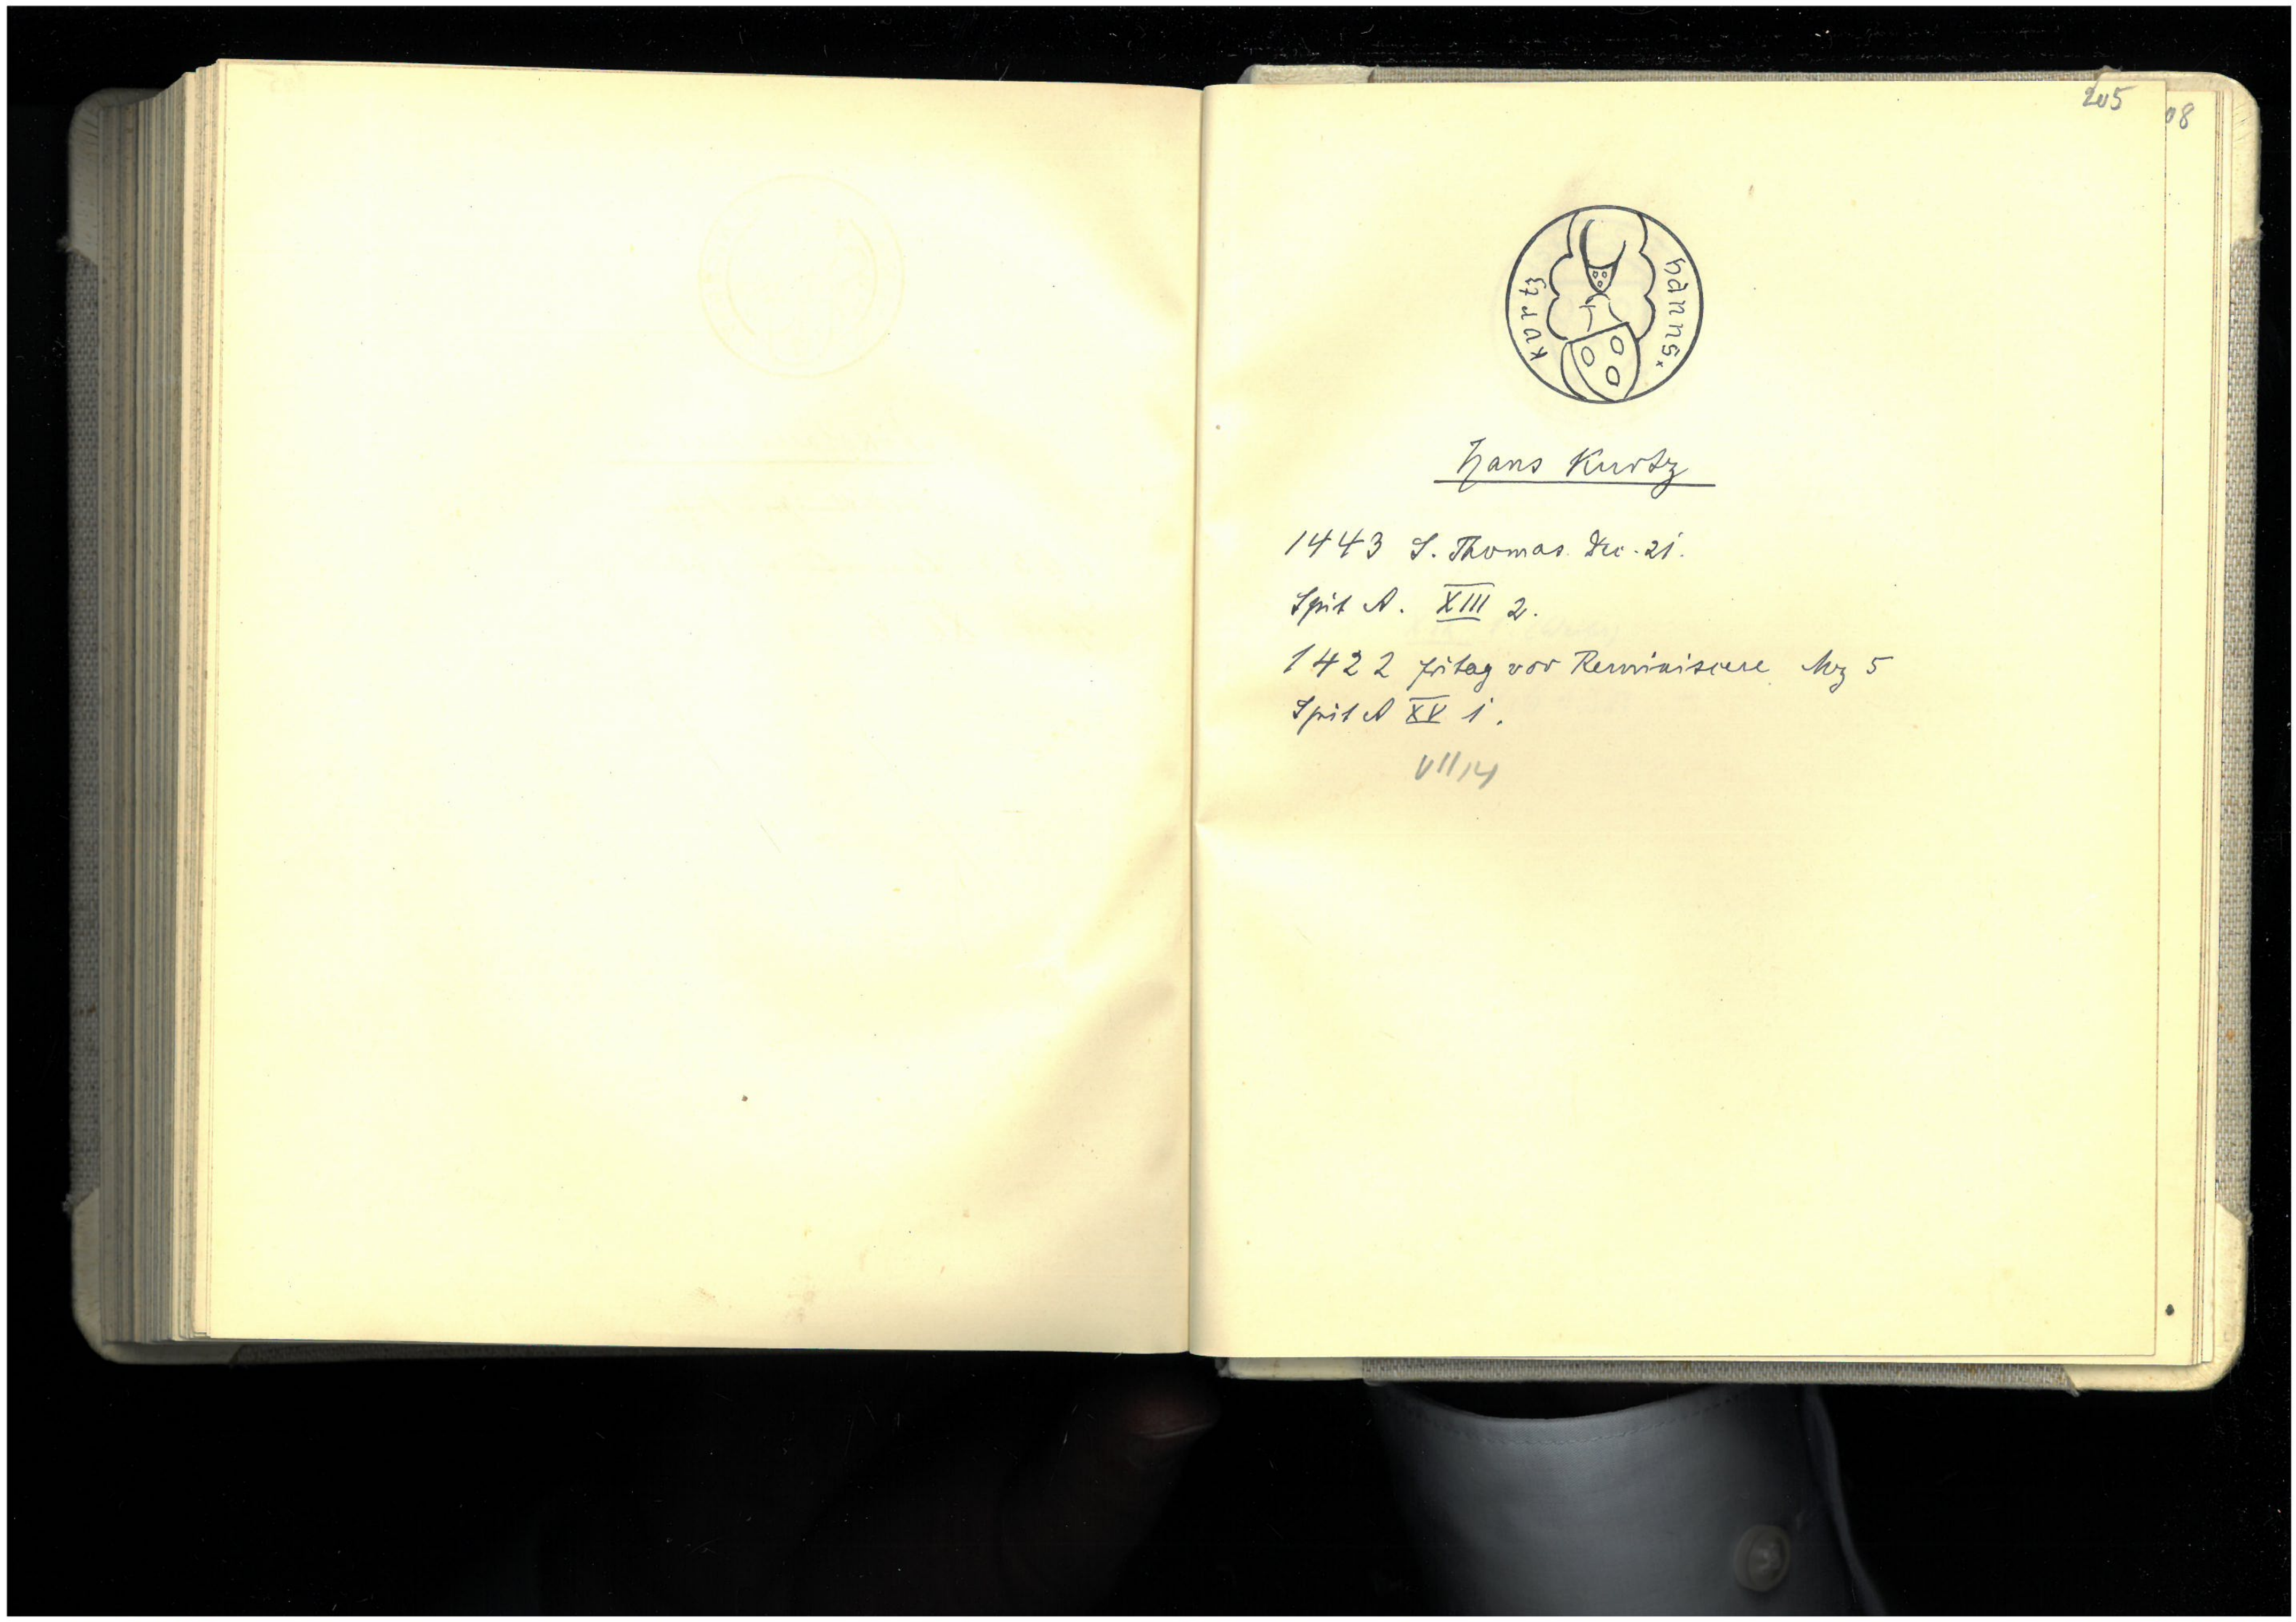 205
08
hanns. kurtz
Hans Kurtz
1443 S. Thomas. Dec. 21.
Spit A. XIII 2.
1422 fritag vor Reminiscere Mz 5
Spit A XV 1.
VII/14